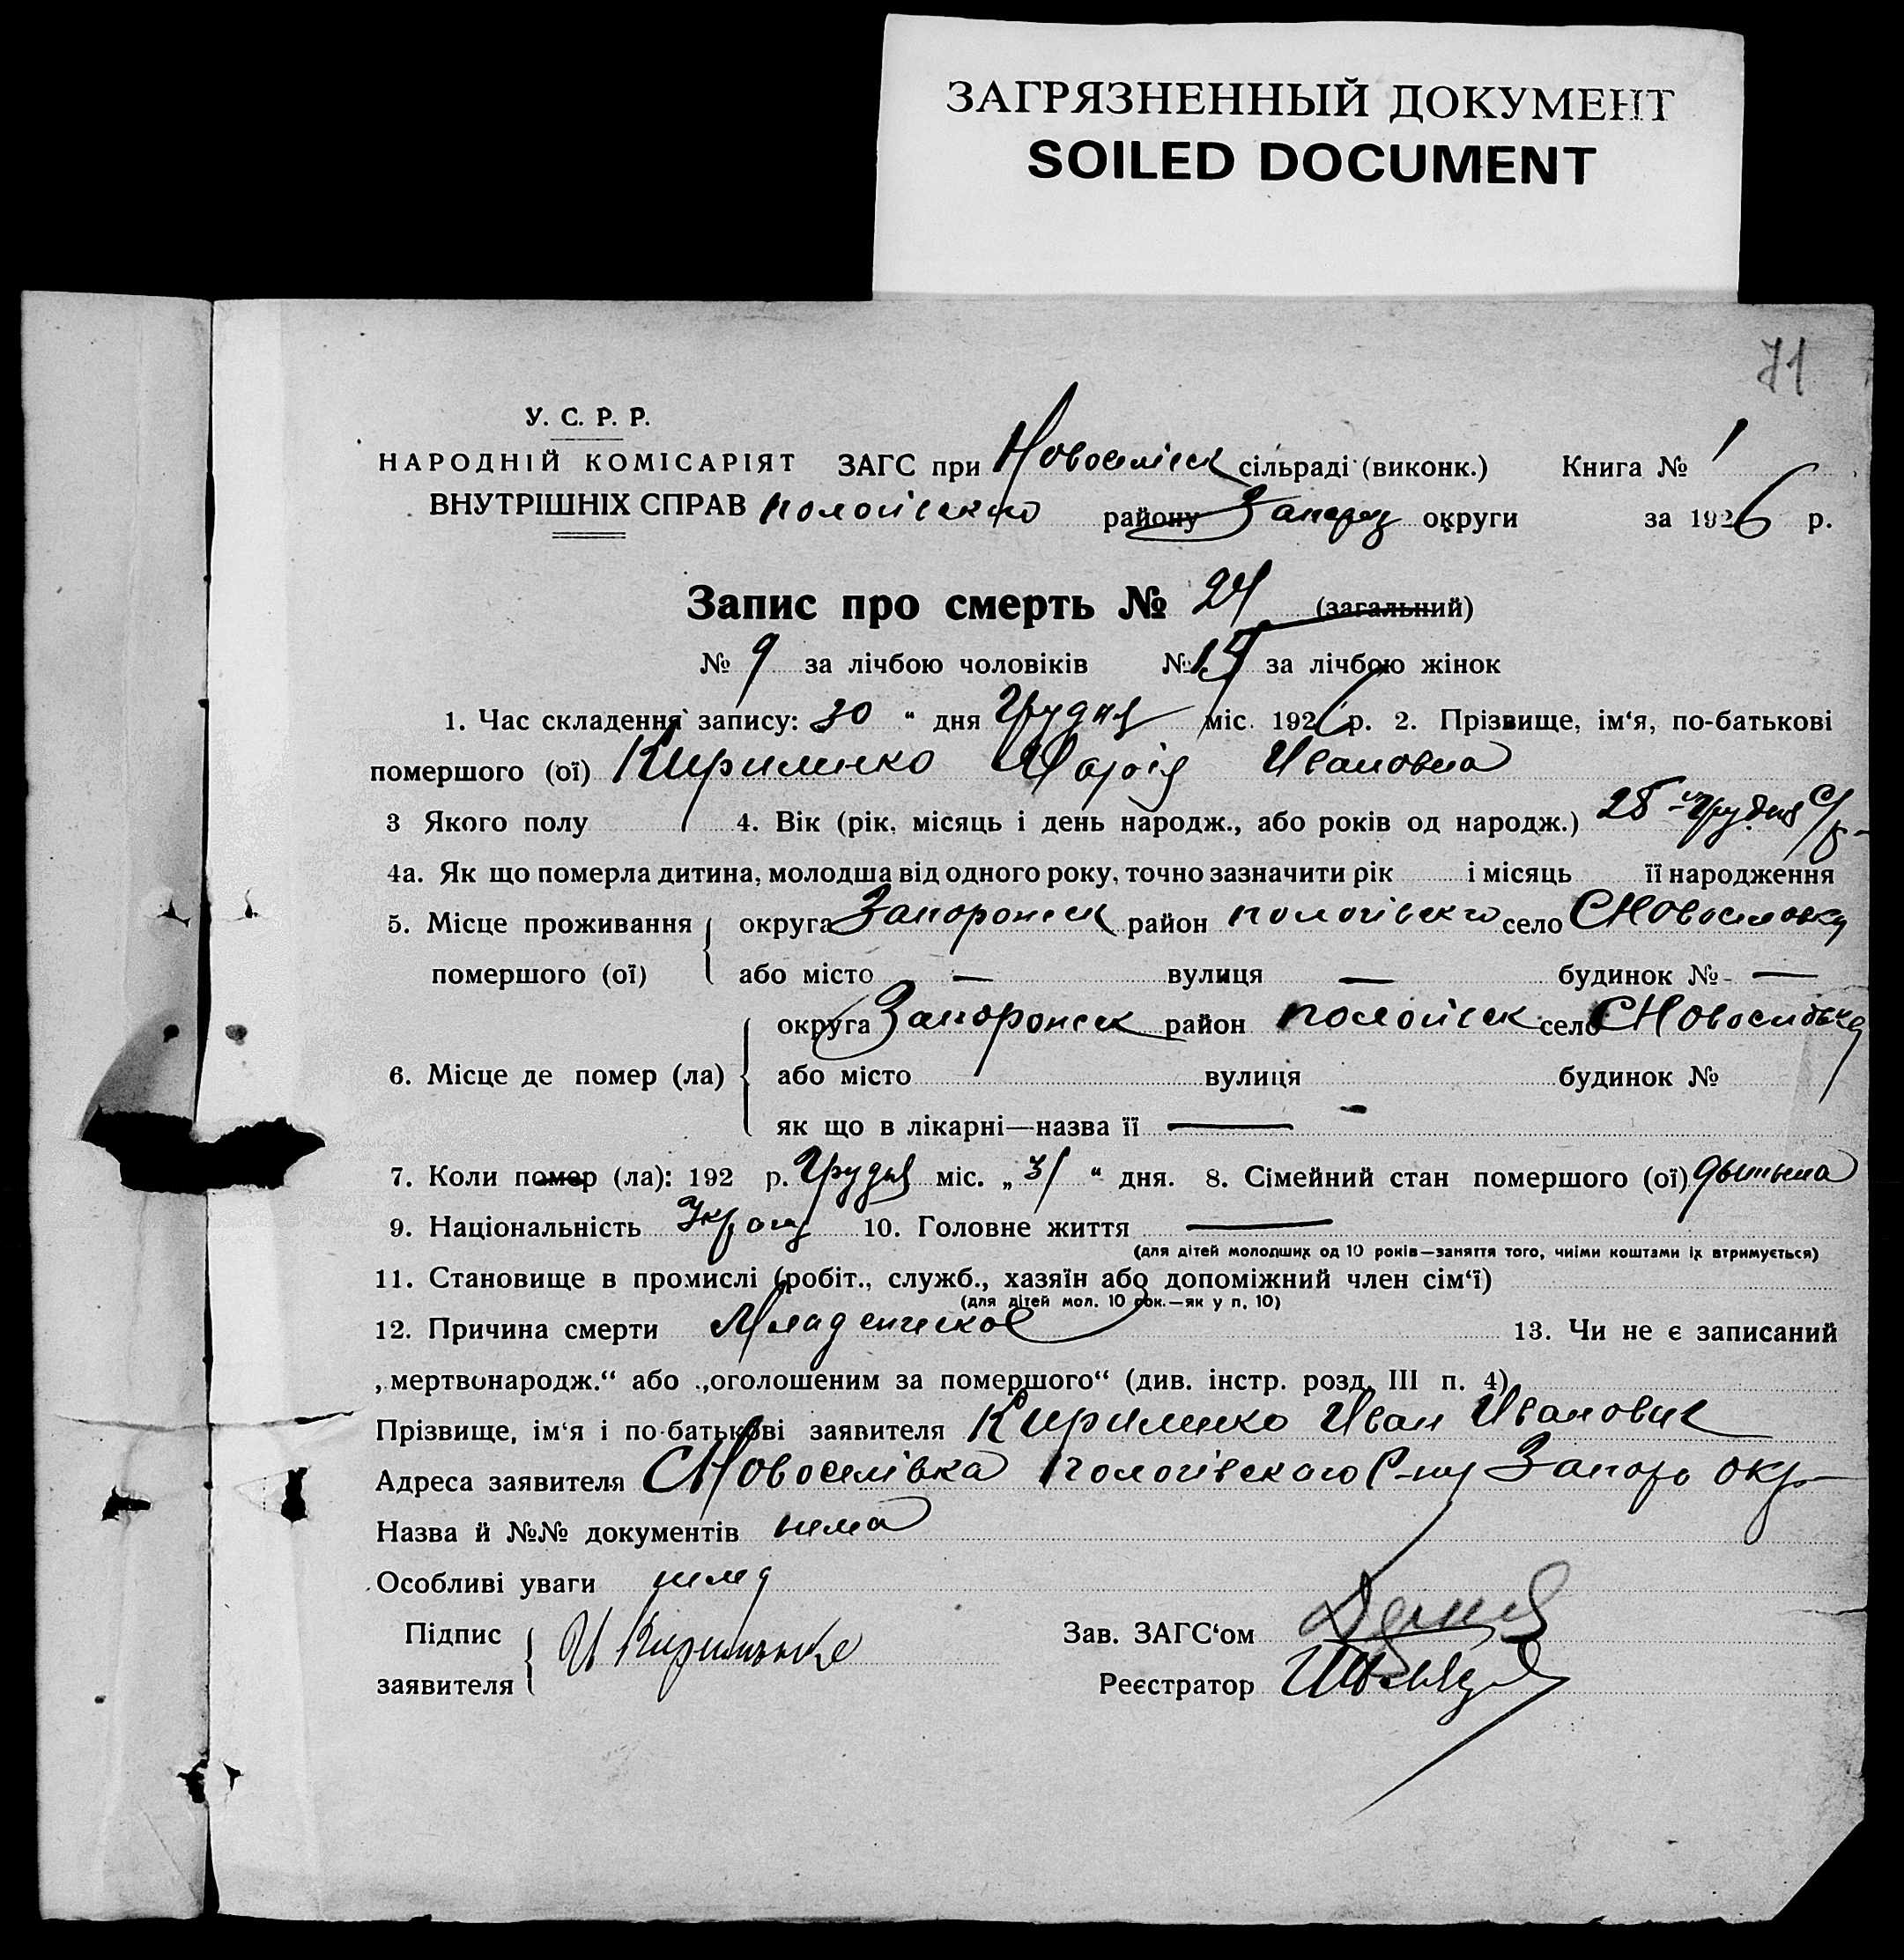 ЗАГРЯЗНЕННЫЙ ДОКУМЕНТ
SOILED DOCUMENT
71
У. С. Р. Р.
НАРОДНІЙ КОМІСАРІЯТ ЗАГС при Новоселівск сільраді (виконк.) Книга № 1
ВНУТРІШНІХ СПРАВ пологівского району Запорож округи за 1926 р.
Запис про смерть № 24 (загальний)
№ 9 за лічбою чоловіків № 15 за лічбою жінок
1. Час складення запису: 30 " дня Грудня міс. 1926 р. 2. Прізвище, ім'я, по-батькові
помершого (ої) Кириленко Марія Ивановна
3 Якого полу 4. Вік (рік, місяць і день народж., або років од народж.) 28 Грудня с/р
4а. Як що померла дитина, молодша від одного року, точно зазначити рік і місяць її народження
5. Місце проживання округа Запорожск район пологівского село С Новоселовка
помершого (ої) або місто — вулиця — будинок № —
округа Запорожск район пологівск село С Новоселовка
6. Місце де помер (ла) або місто вулиця будинок №
як що в лікарні—назва її —
7. Коли помер (ла): 192 р. Грудня міс. „31" дня. 8. Сімейний стан помершого (ої) дытына
9. Національність Украин 10. Головне життя —
(для дітей молодших од 10 років—заняття того, чиїми коштами їх втримується)
11. Становище в промислі (робіт., служб., хазяїн або допоміжний член сім'ї)
(для дітей мол. 10 рок.—як у п. 10)
12. Причина смерти Младенческое 13. Чи не є записаний
„мертвонародж.“ або „оголошеним за помершого“ (див. інстр. розд. III п. 4)
Прізвище, ім'я і по-батькові заявителя Кириленко Иван Иванович
Адреса заявителя С Новоселівка Пологівского Р-ну Запоро окр
Назва й №№ документів нема
Особливі уваги нема
Підпис И Кириленко Зав. ЗАГС'ом
заявителя Реєстратор